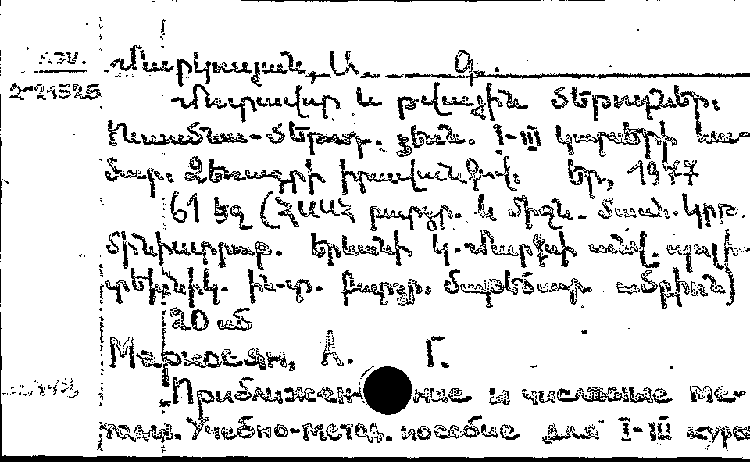 Մարկոսյան, Ա. Գ.
2-21525
Մոտավոր և թվային մեթոդներ.
Ուսումնա-մեթոդ. ձեռն. I-III կուրսերի հա-
մար. Ձեռագրի իրավունքով. Եր., 1977
61 եզ (ՀՍՍՀ բարձր. և միջն. մասն. կրթ.
մինիստրութ. Երևանի Կ. Մարքսի անվ. պոլի-
տեխնիկ. ին-տ. Բարձր. մաթեմատ. ամբիոն)
20 սմ
Маркосян, А. Г.
Приближенные и численные ме-
тоды. Учебно-метод. пособие для I-III курс